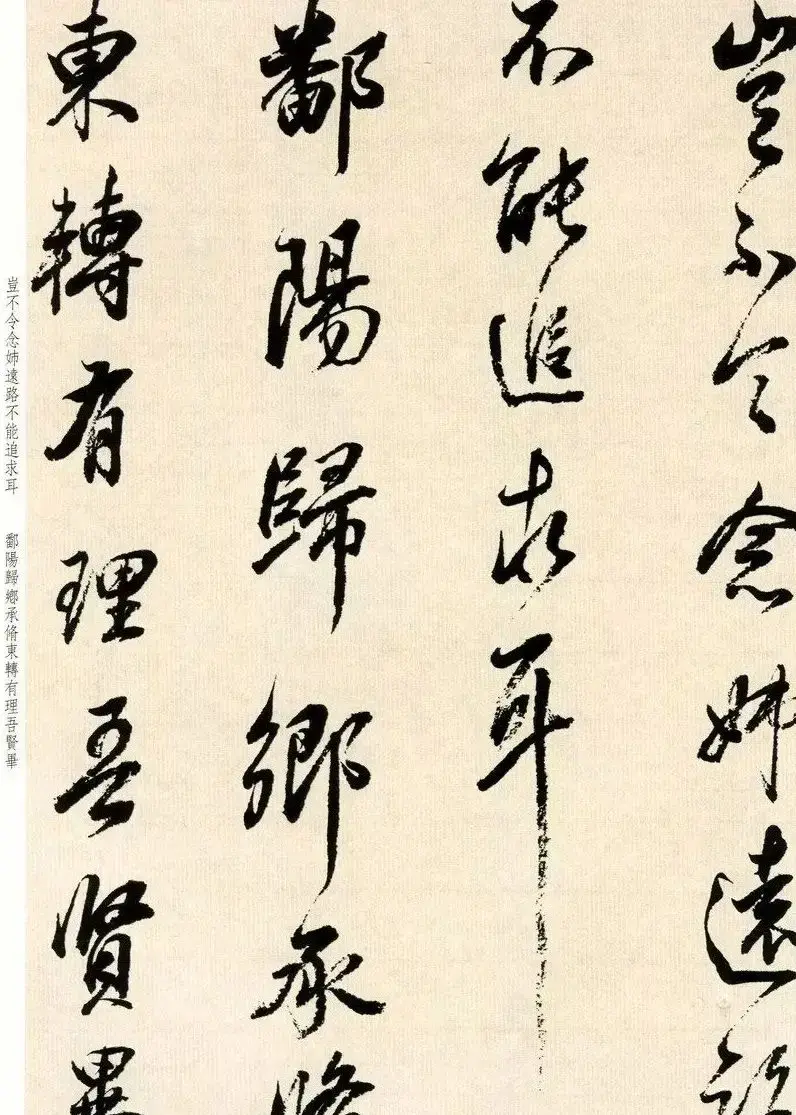 豈不令念姊遠路
不能追求耳
鄱陽歸鄉承脩
東轉有理吾賢畢
豈不令念姊遠路不能追求耳　鄱陽歸鄉承脩東轉有理吾賢畢